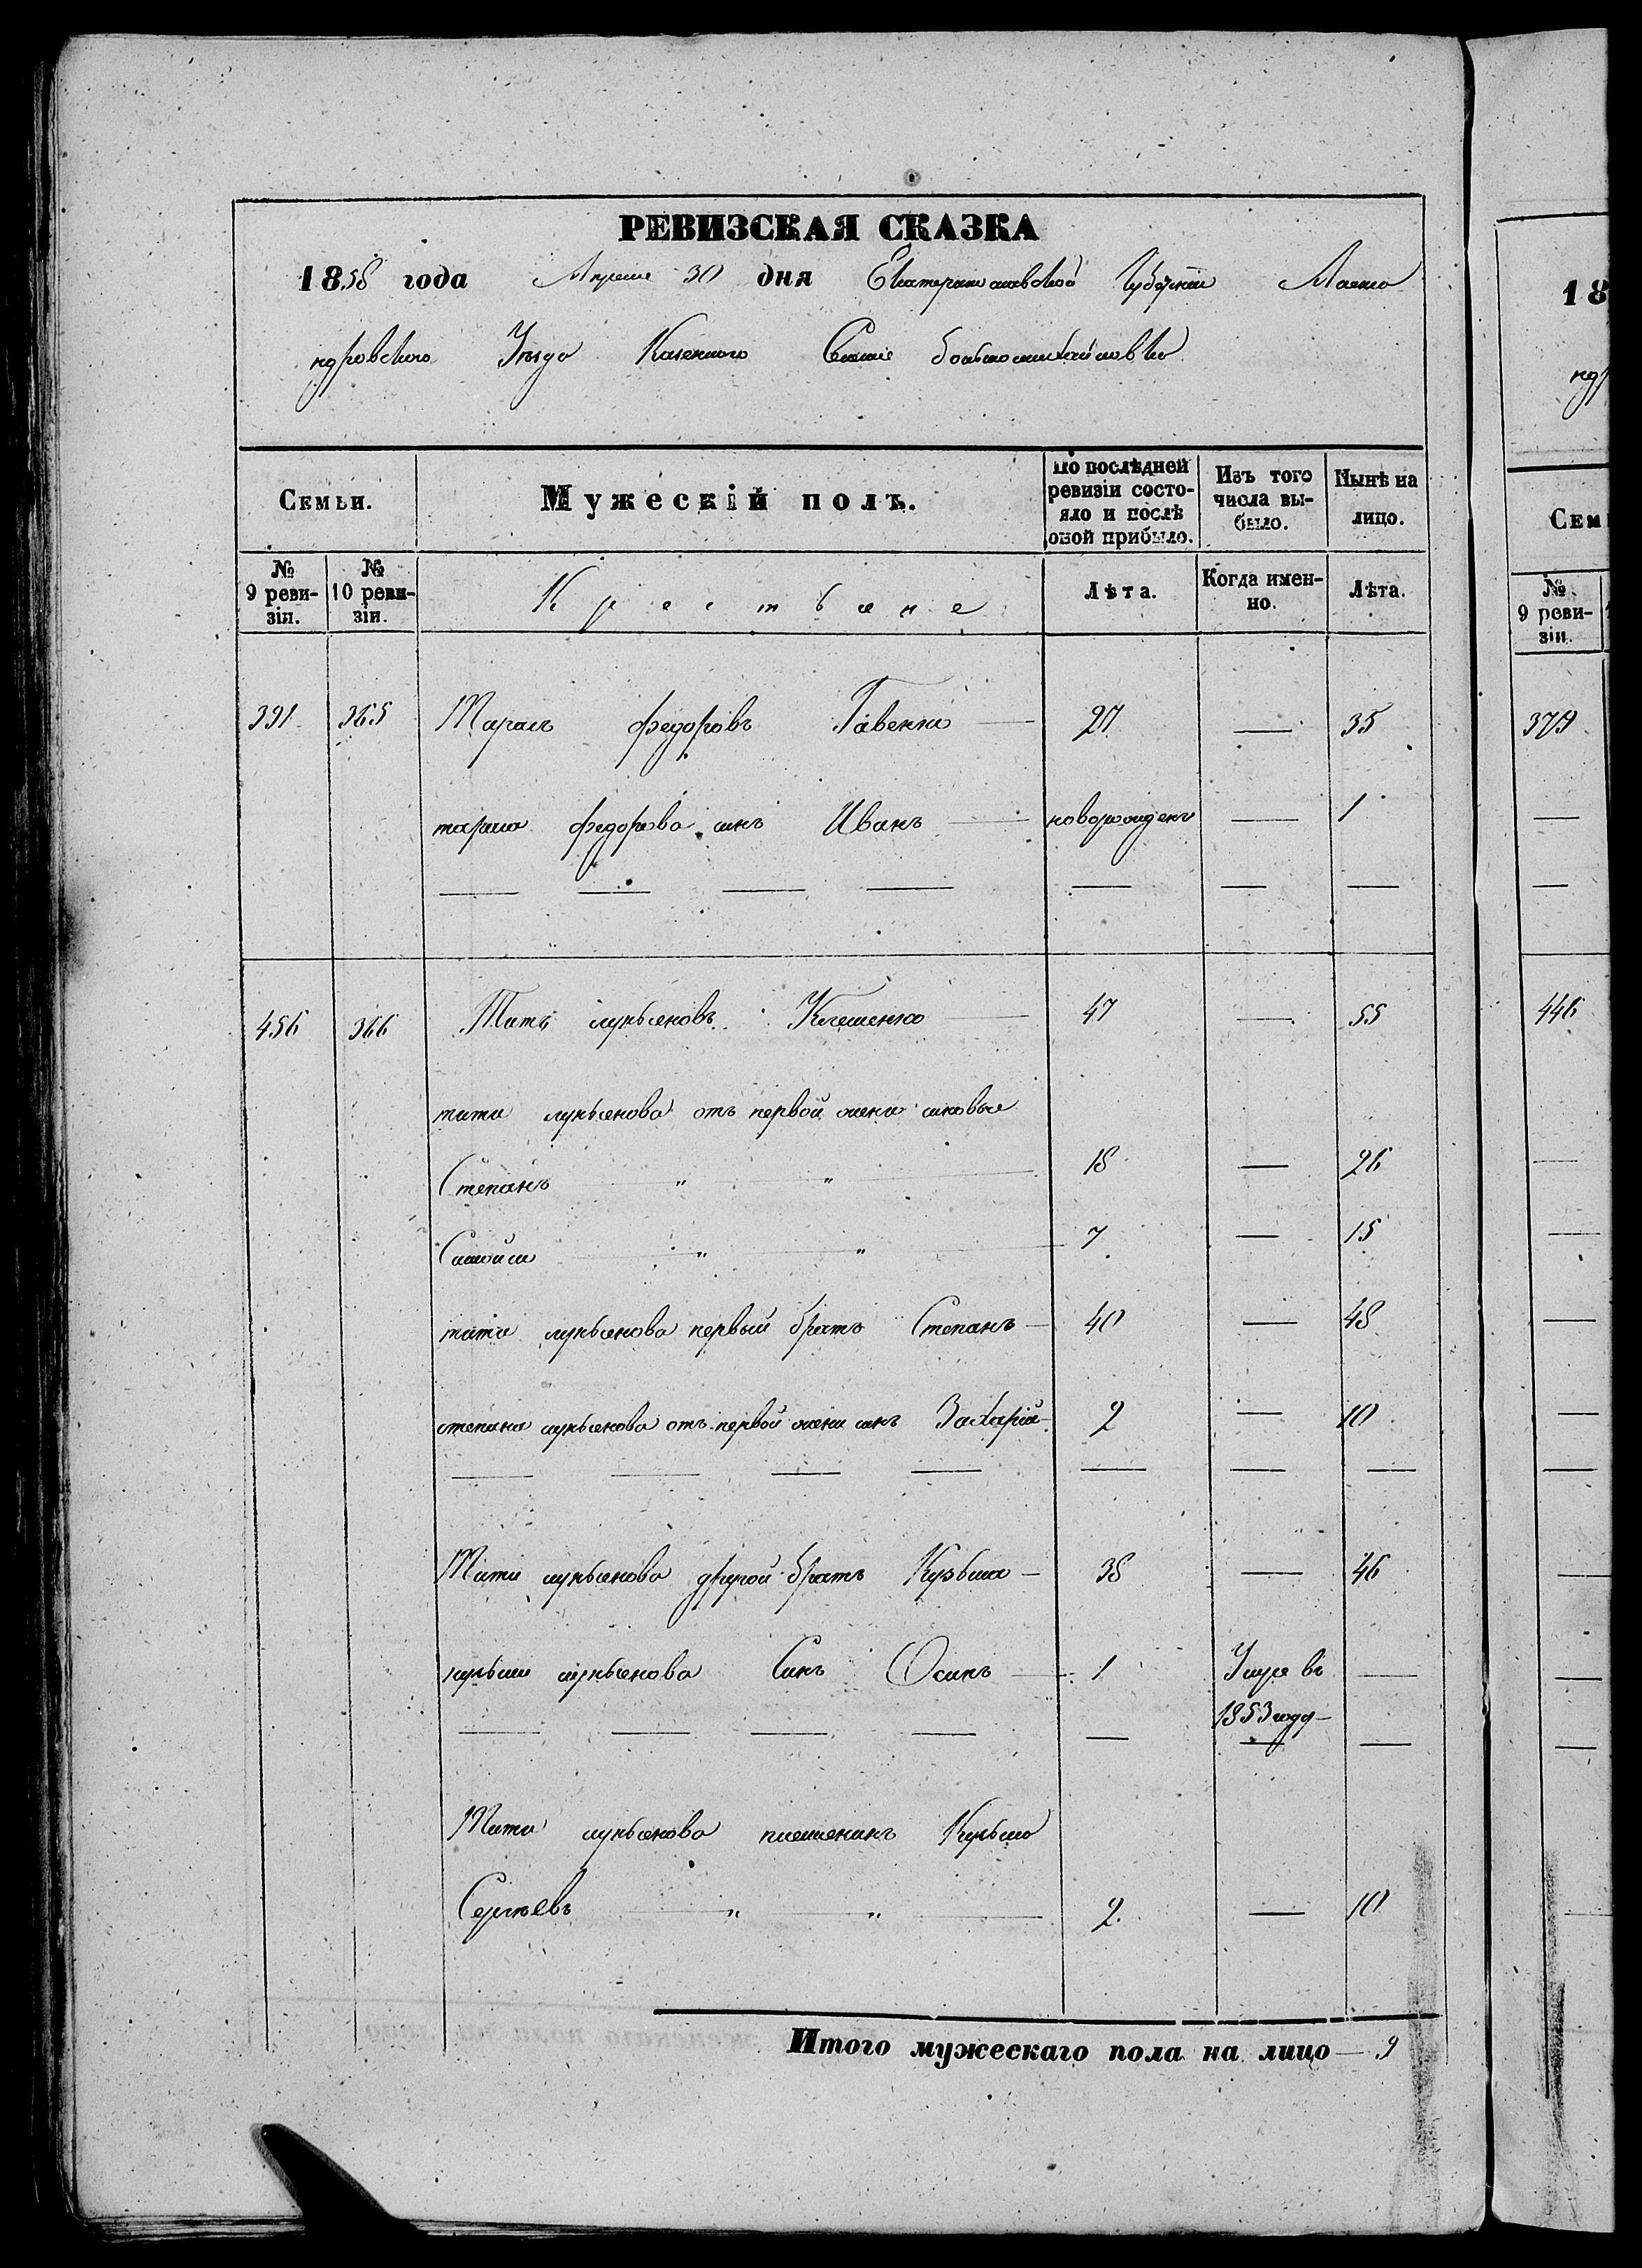 РЕВИЗСКАЯ СКАЗКА
1858 года Апреля 30 дня Екатеринославской Губерніи Алекса
ндровского Уезда Казенного Селенія большомихайловки
18
Семьи.
Мужескій полъ.
По послѣдней ревизіи состо-
яло и послѣ
оной прибыло.
Изъ того
числа вы-
было.
Нынѣ на
лицо.
Сем
№
9 реви-
зіи.
№
10 реви-
зіи.
Крестьяне
Лѣта.
Когда имен-
но.
Лѣта.
№
9 реви-
зіи.
391 365 Тарасъ федоровъ Гавенко — 27 — 35
379
тараса федорова синъ Иванъ — новорожденъ — 1
456 366 Титъ лукьяновъ Клешенко — 47 — 55
446
тита лукьянова отъ первой жены сыновья
Степанъ " " 18 — 26
Самойла " " 7 — 15
тита лукьянова первый братъ Степанъ — 40 — 48
степана лукьянова отъ первой жены синъ Захарій — 2 — 10
Тита лукьянова другой братъ Кузьма — 38 — 46
кузьмы лукьянова Синъ Осипъ — 1 Умре въ —
1853 году —
Тита лукьянова племеникъ Кузьма
Сергѣевъ " " 2 — 10
Итого мужескаго пола на лицо — 9